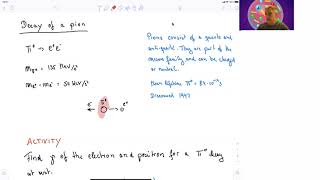 Decay of a pion
π° → e⁺e⁻
mπ° = 135 MeV/c²
Pions consist of a quark and
anti-quark. They are part of the
meson family and can be charged
or neutral.
Mean lifetime π° = 8.4·10⁻¹⁷s
Discovered 1947
e⁻ π° e⁺
ACTIVITY
Find p of the electron and positron for a π° decay
at rest.